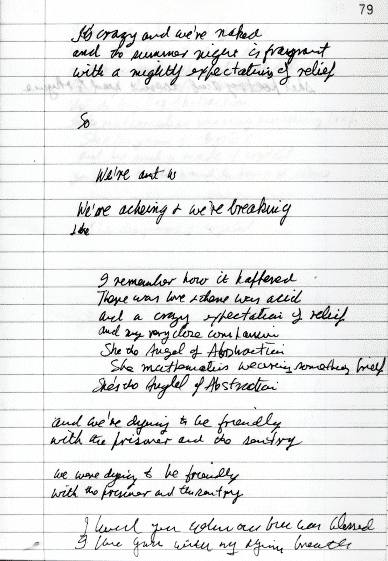 79
It's crazy and we're naked
and the summer night is fragrant
with a mighty expectation of relief
So
We're out
We're acheing & we're breaking
& the
I remember how it happened
There was love & there was acid
and a crazy expectation of relief
and my very close companion
She the Angel of Abstraction
She mathematics wearing something brief
She's the Angel of Abstraction
and we're dying to be friendly
with the prisoner and the sentry
we were dying to be friendly
with the prisoner and the sentry
I loved you when our love was blessed
I love you with my dying breath